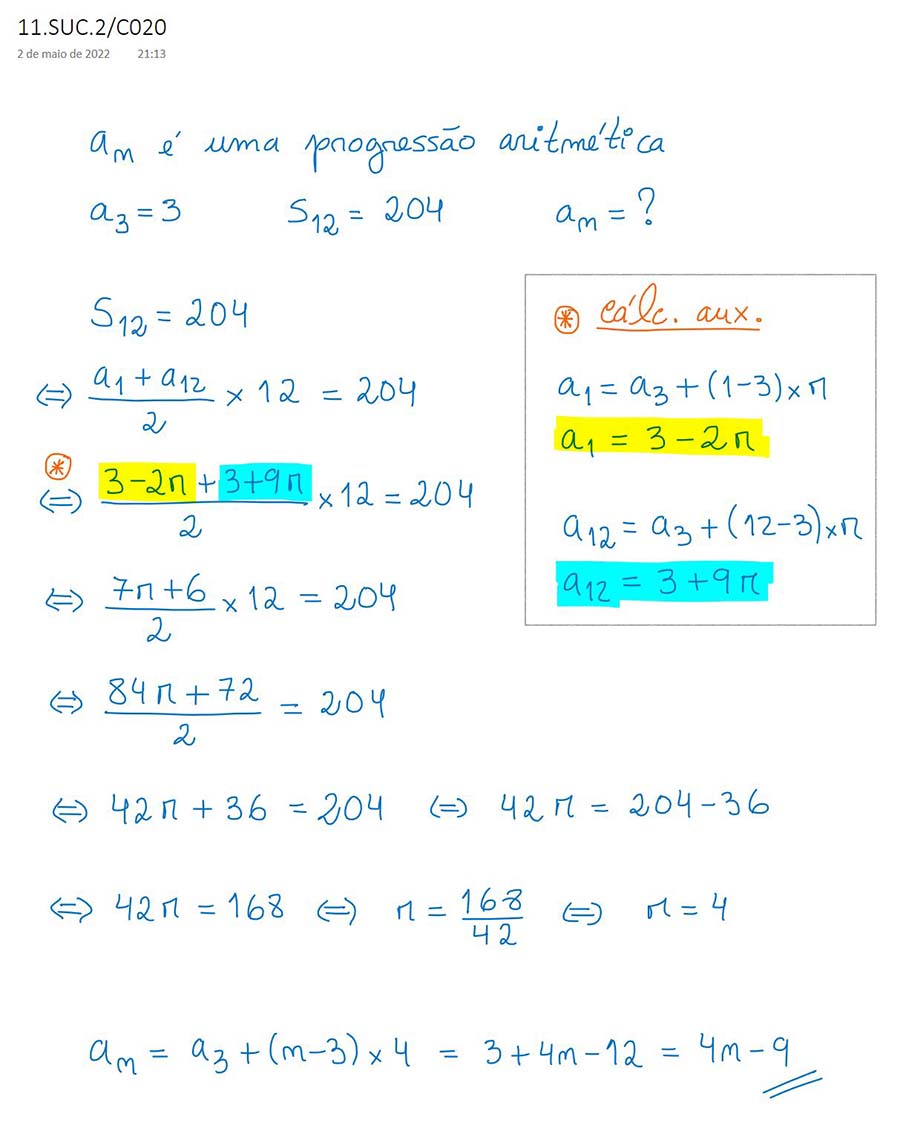 11.SUC.2/C020
2 de maio de 2022 21:13
aₙ é uma progressão aritmética
a₃ = 3 S₁₂ = 204 aₙ = ?
S₁₂ = 204
⇔ (a₁ + a₁₂)/2 × 12 = 204
⊛
⇔ (3 − 2r + 3 + 9r)/2 × 12 = 204
⇔ (7r + 6)/2 × 12 = 204
⇔ (84r + 72)/2 = 204
⇔ 42r + 36 = 204 ⇔ 42r = 204 − 36
⇔ 42r = 168 ⇔ r = 168/42 ⇔ r = 4
aₙ = a₃ + (n − 3) × 4 = 3 + 4n − 12 = 4n − 9
⊛ cálc. aux.
a₁ = a₃ + (1 − 3) × r
a₁ = 3 − 2r
a₁₂ = a₃ + (12 − 3) × r
a₁₂ = 3 + 9r